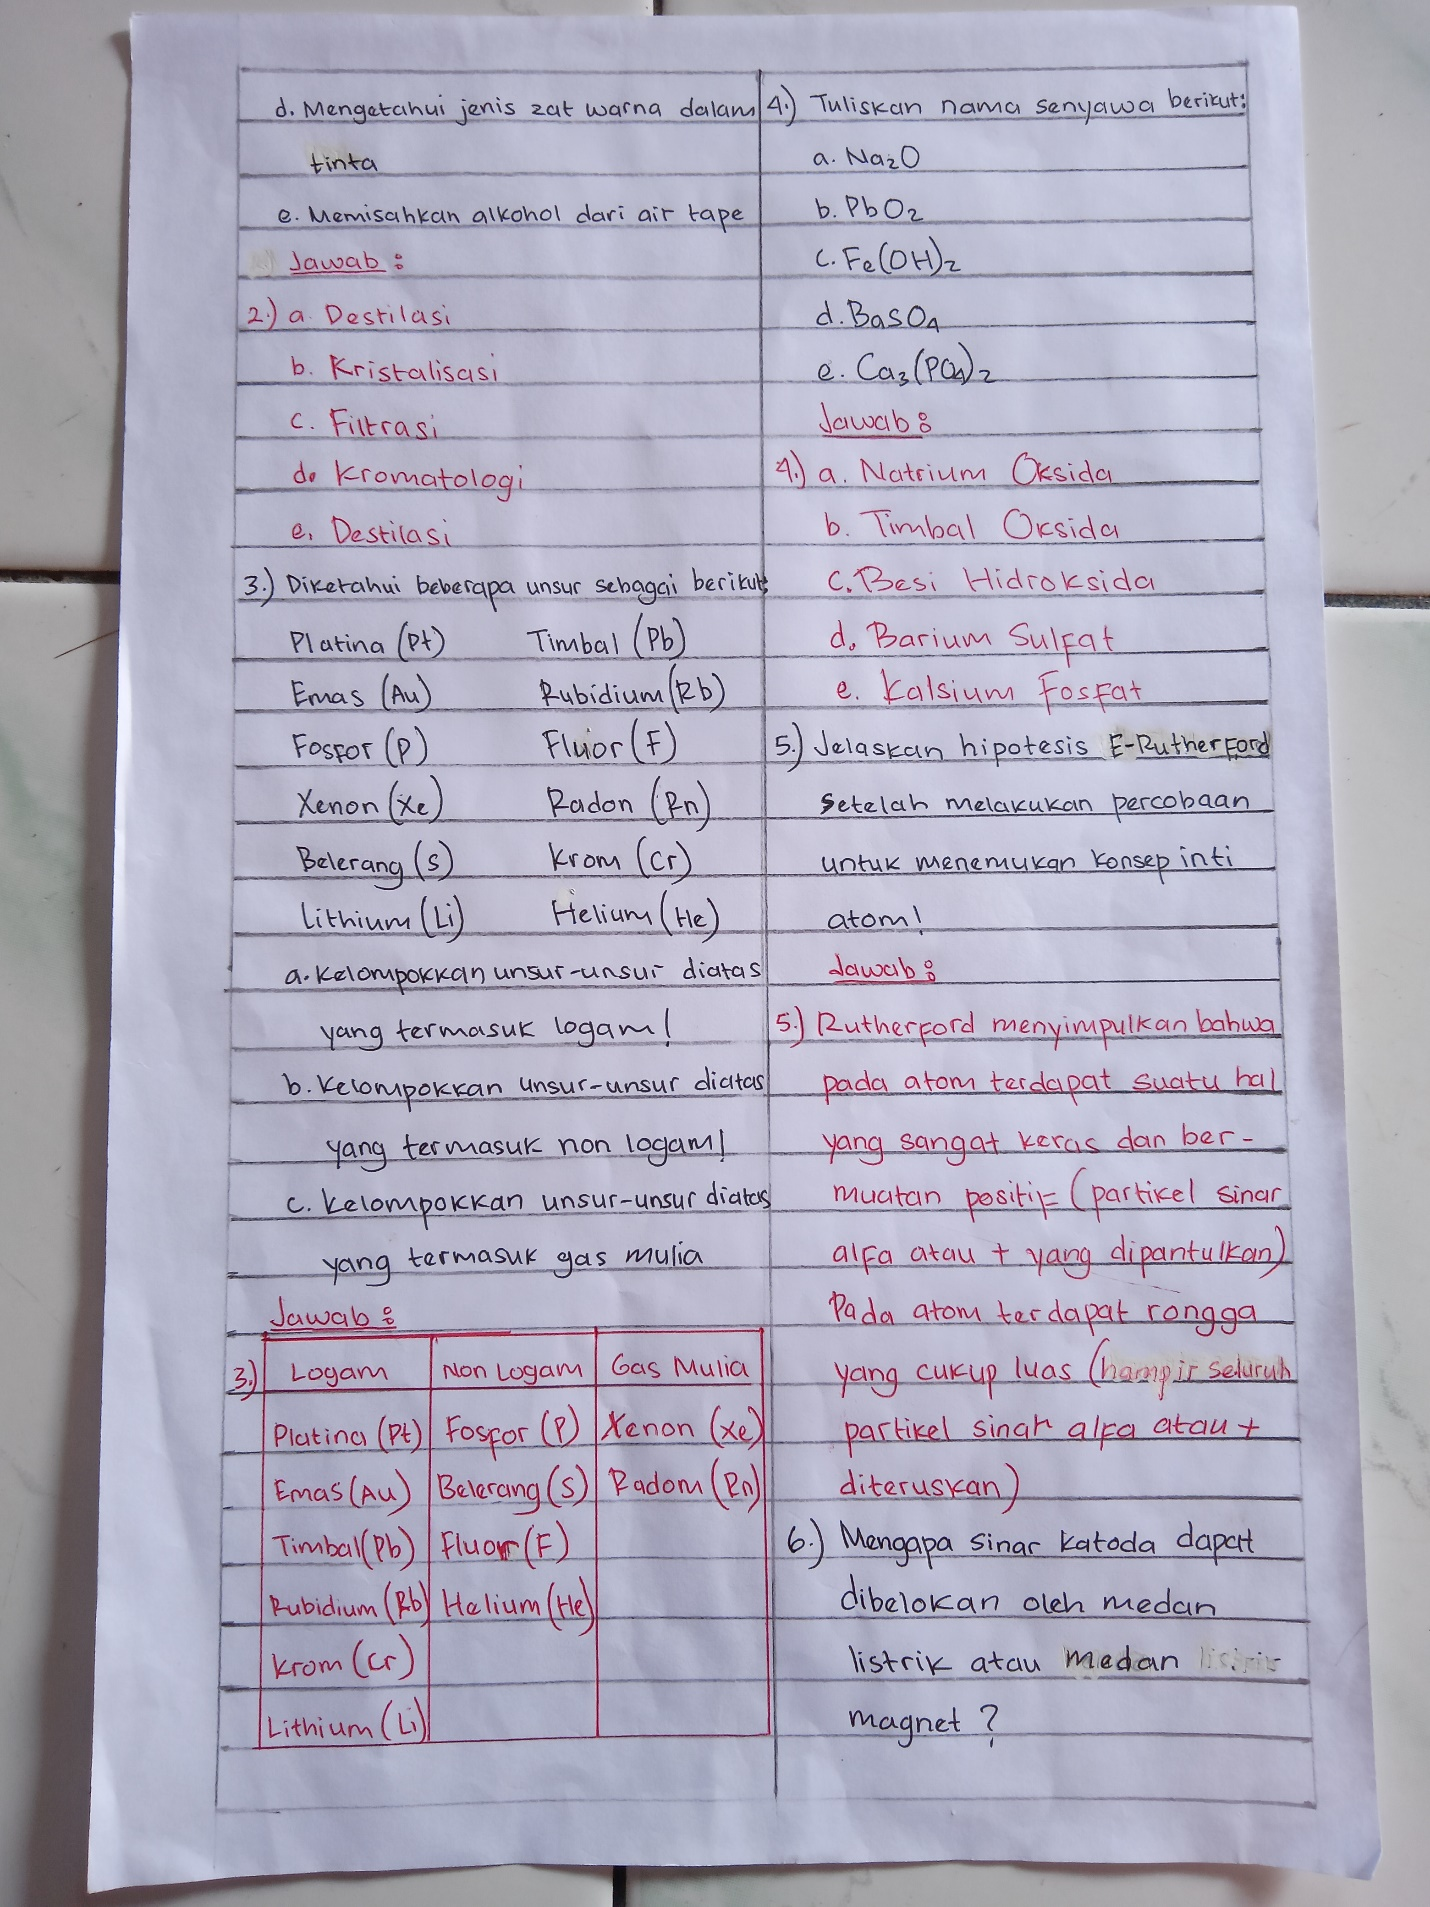 d. Mengetahui jenis zat warna dalam
tinta
e. Memisahkan alkohol dari air tape
Jawab :
2.) a. Destilasi
b. Kristalisasi
c. Filtrasi
d. Kromatologi
e. Destilasi
3.) Diketahui beberapa unsur sebagai berikut:
Platina (Pt) Timbal (Pb)
Emas (Au) Rubidium (Rb)
Fosfor (P) Fluor (F)
Xenon (Xe) Radon (Rn)
Belerang (S) Krom (Cr)
Lithium (Li) Helium (He)
a. Kelompokkan unsur-unsur diatas
yang termasuk logam!
b. Kelompokkan unsur-unsur diatas
yang termasuk non logam!
c. Kelompokkan unsur-unsur diatas
yang termasuk gas mulia
Jawab :
3.) Logam Non Logam Gas Mulia
Platina (Pt) Fosfor (P) Xenon (Xe)
Emas (Au) Belerang (S) Radom (Rn)
Timbal (Pb) Fluor (F)
Rubidium (Rb) Helium (He)
Krom (Cr)
Lithium (Li)
4.) Tuliskan nama senyawa berikut:
a. Na₂O
b. PbO₂
c. Fe(OH)₂
d. BaSO₄
e. Ca₃(PO₄)₂
Jawab :
4.) a. Natrium Oksida
b. Timbal Oksida
c. Besi Hidroksida
d. Barium Sulfat
e. Kalsium Fosfat
5.) Jelaskan hipotesis E-Rutherford
setelah melakukan percobaan
untuk menemukan konsep inti
atom!
Jawab :
5.) Rutherford menyimpulkan bahwa
pada atom terdapat suatu hal
yang sangat keras dan ber-
muatan positif (partikel sinar
alfa atau + yang dipantulkan)
Pada atom terdapat rongga
yang cukup luas (hampir seluruh
partikel sinar alfa atau +
diteruskan)
6.) Mengapa sinar katoda dapat
dibelokan oleh medan
listrik atau medan
magnet ?